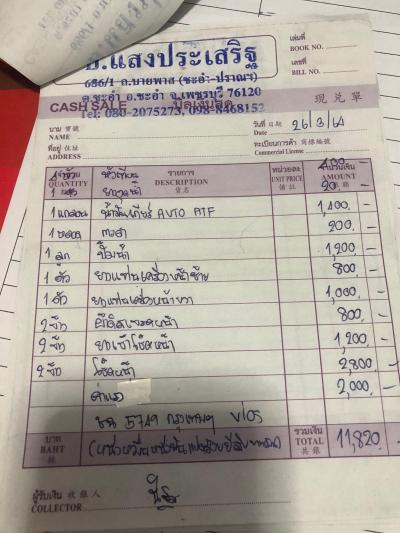 ช.แสงประเสริฐ
686/1 ถ.บายพาส (ชะอำ-ปราณฯ)
ต.ชะอำ อ.ชะอำ จ.เพชรบุรี 76120
Tel: 080-2075273, 098-8468152
เล่มที่
BOOK NO.
เลขที่
BILL NO.
CASH SALE บิลเงินสด 現兌單
นาม 寶號
NAME
วันที่ 日期
Date 26/3/64
ที่อยู่ 住址
ADDRESS
ทะเบียนการค้า 商標編號
Commercial License
จำนวน QUANTITY รายการ DESCRIPTION 貨名 หน่วยละ UNIT PRICE จำนวนเงิน AMOUNT
4 หัวเทียน 400 -
20 -
1 แกลอน น้ำมันเกียร์ AUTO ATF 1,400 -
1 กาว 200 -
1 ลูก ปั๊มน้ำ 1,200 -
1 ตัว ยางแท่นเครื่องหน้าซ้าย 800 -
1 ตัว ยางแท่นเครื่องหน้าขวา 1,000 -
2 หน้า 800 -
2 ยางเบ้าโช๊คหน้า 1,200 -
2 โช๊คหน้า 2,800 -
ค่าแรง 2,000 -
5749 กรุงเทพฯ VIOS
บาท BAHT (หนึ่งหมื่นหนึ่งพันแปดร้อยยี่สิบบาทถ้วน) รวมเงิน TOTAL 共銀 11,820 -
ผู้รับเงิน 收銀人
COLLECTOR